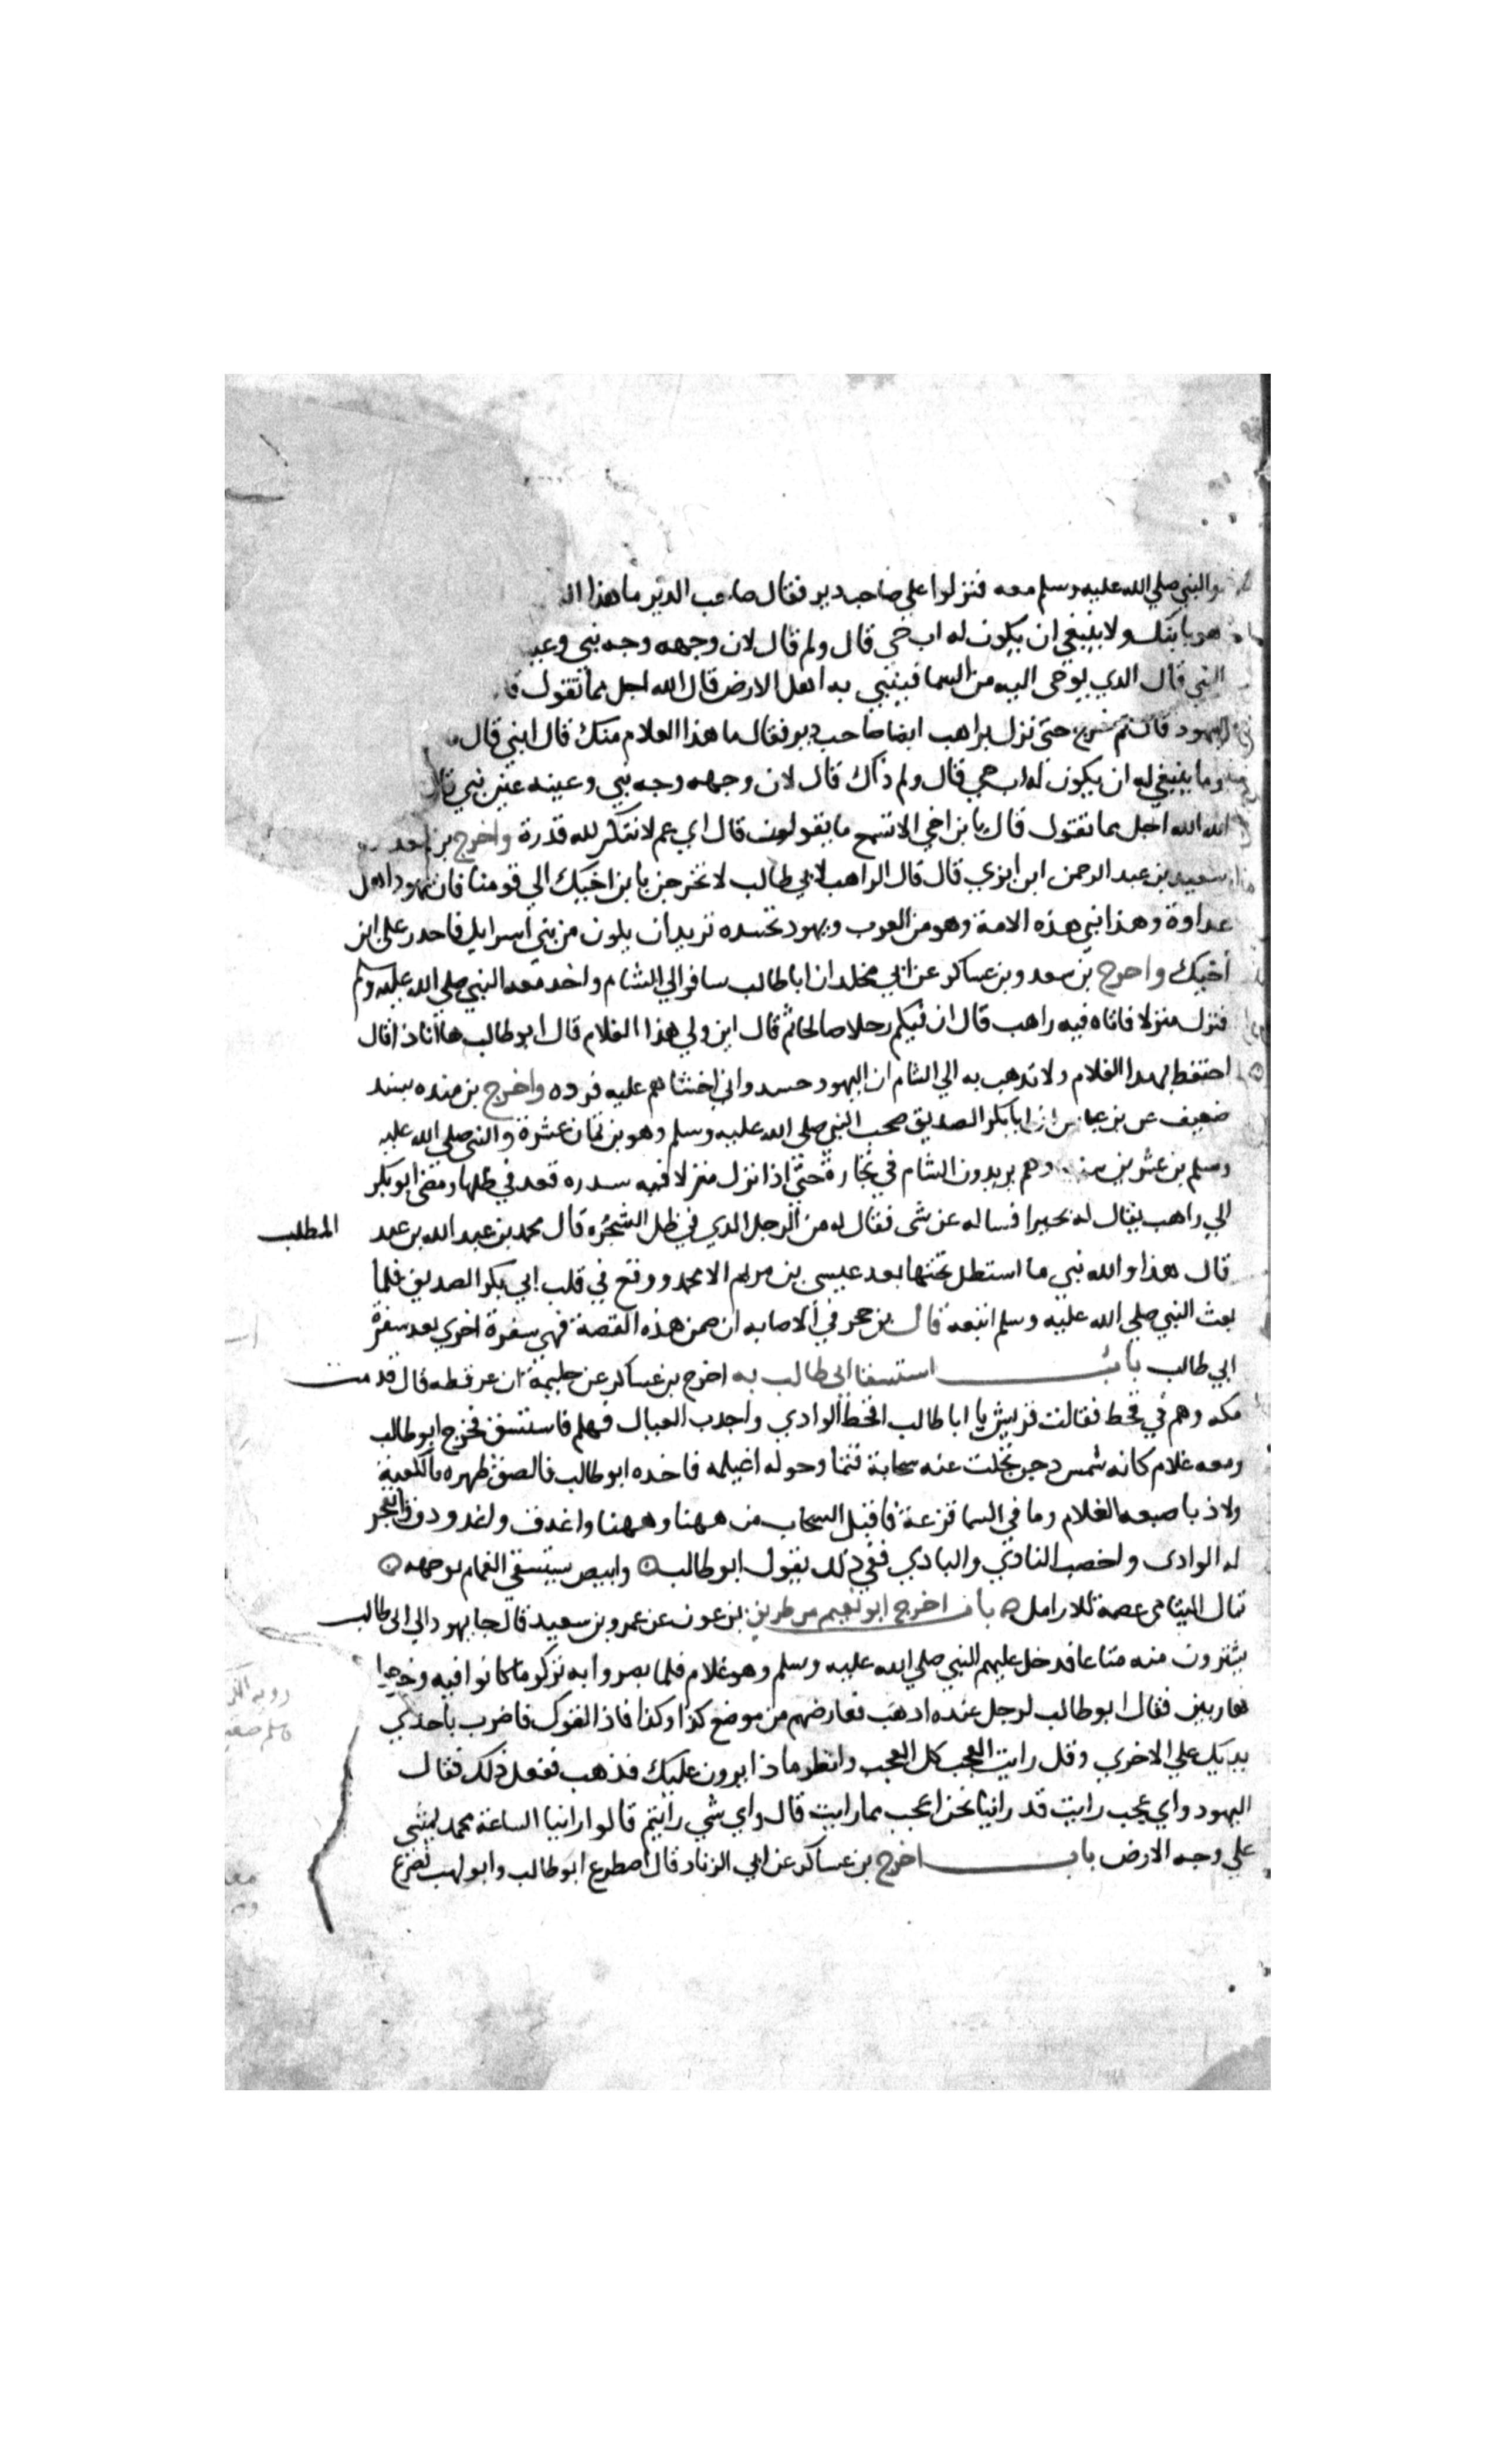 والنبي صلي الله عليه وسلم معه فنزلوا علي صاحب دير فقال صاحب الدير ما هذا
هو بابنك ولا ينبغي ان يكون له اب حي قال ولم قال لان وجهه وجه نبي
النبي قال الذي يوحى اليه من السما فينبي به اهل الارض قال الله اجل مما تقول
اليهود قال ثم خرج حتى نزل براهب ايضا صاحب دير فقال ما هذا الغلام منك قال ابني قال
وما ينبغي له ان يكون له اب حي قال ولم ذاك قال لان وجهه وجه نبي وعينه عين نبي قال
الله اجل مما تقول قال يا بن اخي الا تسمع ما يقولون قال اي عم لا تنكر لله قدرة واخرج بن سعد
سعيد بن عبد الرحمن ابن ابزي قال قال الراهب لابي طالب لا تخرجن يا بن اخيك الي قومنا فان يهود اهل
عداوة وهذا نبي هذه الامة وهو من العرب ويهود تحسده تريد ان يكون من بني اسرايل فاحدر على ابن
أخيك واخرج بن سعد وبن عساكر عن ابي مخلد ان ابا طالب سافر الي الشام واخد معه النبي صلي الله عليه وسلم
فنزل منزلا فاتاه فيه راهب قال ان فيكم رجلا صالحا ثم قال اين ولي هذا الغلام قال ابو طالب ها انا ذا قال
احتفظ بهدا الغلام ولا تدهب به الي الشام ان اليهود حسد واني اخشاهم عليه فرده واخرج بن منده بسند
ضعيف عن بن عباس ان ابا بكر الصديق صحب النبي صلي الله عليه وسلم وهو بن ثمان عشرة والنبي صلي الله عليه
وسلم بن عشرين سنه وهم يريدون الشام في تجارة حتي اذا نزل منزلا فيه سدره قعد في ظلها ومضى ابو بكر
الي راهب يقال له بحيرا فساله عن شى فقال له من الرجل الدي في ظل الشجره قال محمد بن عبد الله بن عبد المطلب
قال هذا والله نبي ما استظل تحتها بعد عيسى بن مريم الا محمد ووقع في قلب ابي بكر الصديق فلما
بعث النبي صلي الله عليه وسلم اتبعه قال بن حجر في الاصابه ان صحت هذه القصة فهي سفرة اخري بعد سفرة
ابي طالب باب استسقا ابي طالب به اخرج بن عساكر عن جليمة ان عرفطه قال قدمت
مكه وهم في قحط فقالت قريش يا ابا طالب اقحط الوادي واجدب العيال فهلم فاستسق فخرج ابو طالب
ومعه غلام كانه شمس دجن تجلت عنه سحابة قتما وحوله اغيلمه فاخده ابو طالب فالصق ظهره بالكعبة
ولاذ باصبعه الغلام وما في السما قزعة فاقبل السحاب من ههنا وههنا واغدق واغدودق وانفجر
له الوادي واخصب النادي والبادي ففي ذلك يقول ابو طالب وابيض يستسقي الغمام بوجهه
ثمال اليتامى عصمة للارامل باب اخرج ابو نعيم من طريق بن عون عن عمرو بن سعيد قال جا يهود الي ابي طالب
يشترون منه متاعا فدخل عليهم النبي صلي الله عليه وسلم وهو غلام فلما بصروا به تركو ما كانوا فيه وخرجوا
هاربين فقال ابو طالب لرجل عنده ادهب فعارضهم من موضع كذا وكذا فاذا لقوك فاضرب باحدي
يديك علي الاخري وقل رايت العجب كل العجب وانظر ماذا يردون عليك فذهب ففعل ذلك فقال
اليهود واي عجب رايت قد راينا نحن اعجب مما رايت قال واي شي رايتم قالوا راينا الساعة محمد يمشي
علي وجه الارض باب اخرج بن عساكر عن ابي الزناد قال اصطرع ابو طالب وابو لهب فصرع